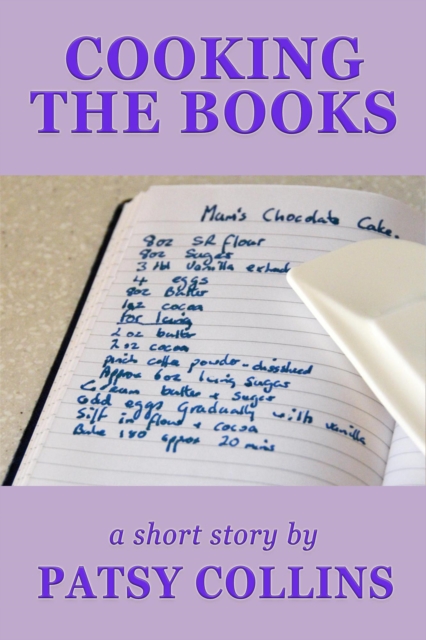 COOKING
THE BOOKS
Mum's Chocolate Cake.
8oz SR flour
8oz Sugar
3 tbl vanilla
4 eggs
8oz Butter
1oz cocoa
for Icing
2oz butter
2oz cocoa
pinch coffee powder - dissolved
Approx 6oz Icing Sugar
Cream butter + sugar
add eggs gradually with vanilla
Sift in flour + cocoa
Bake 180 approx 20 mins
a short story by
PATSY COLLINS